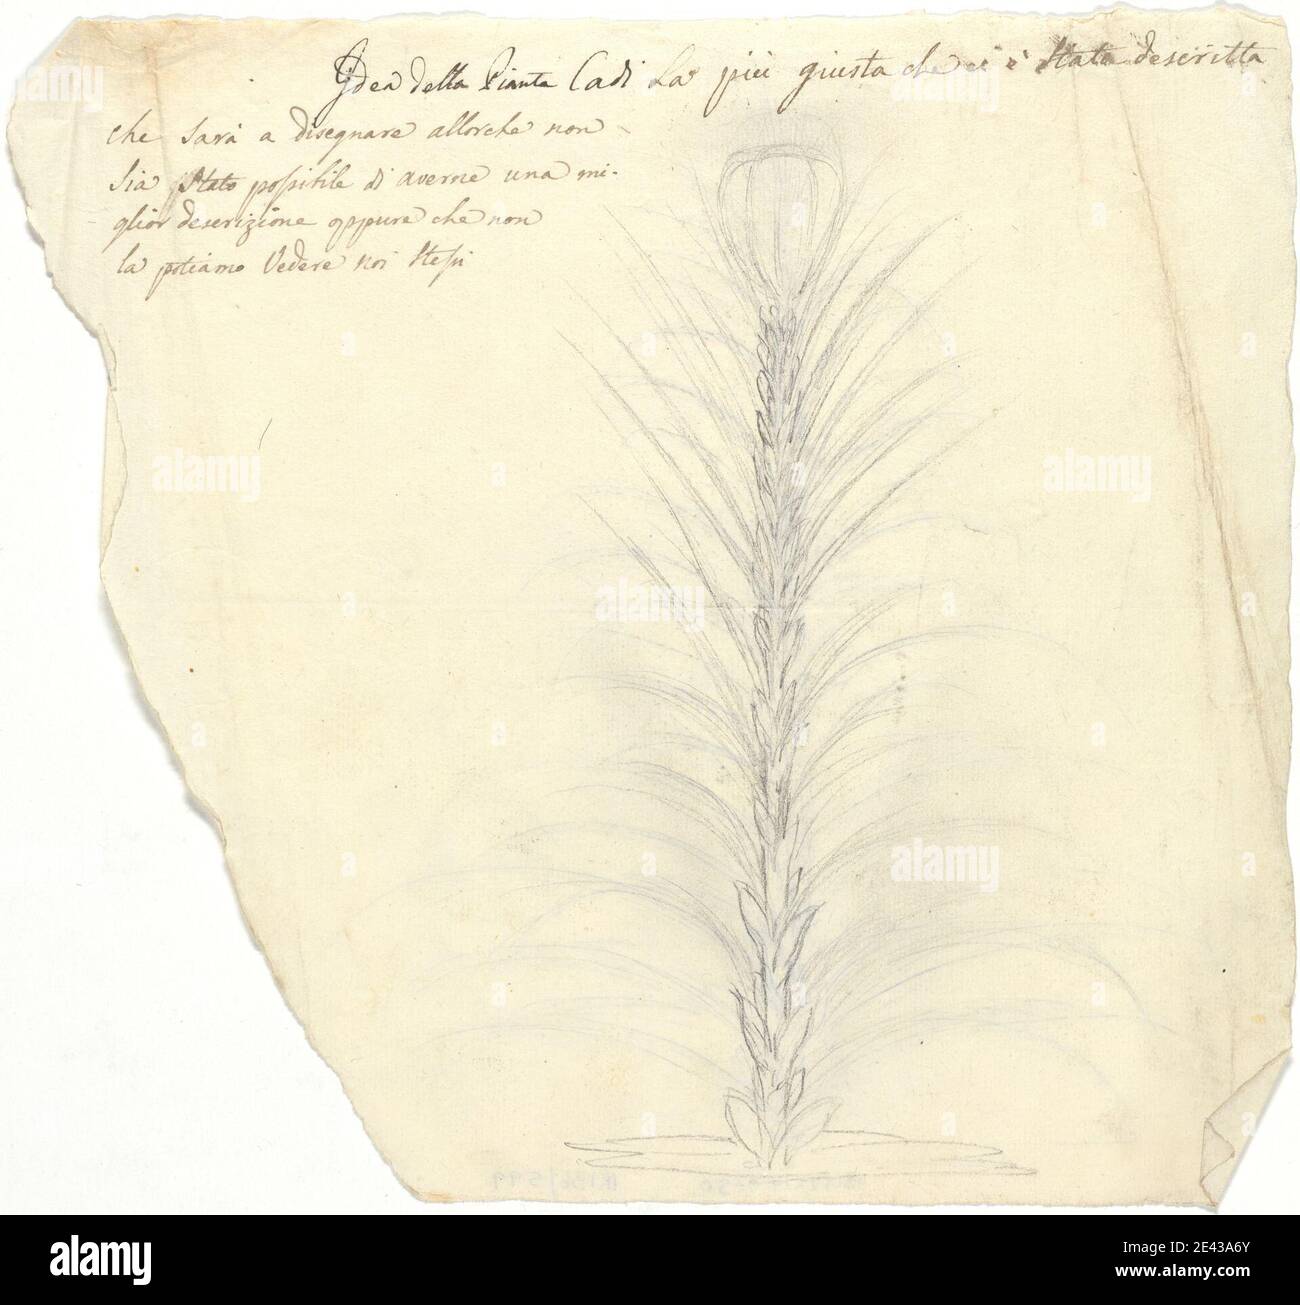 Idea della Pianta Cadi La più giusta che ci è stata descritta
che sarà a disegnare allorche non
sia stato possibile di averne una mi-
glior descrizione oppure che non
la potiamo Vedere noi stessi
alamy
Image ID: 2E43A6Y
www.alamy.com